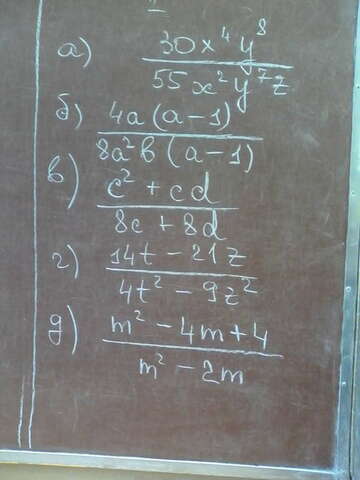 а) 30x⁴y⁸
55x²y⁷z
б) 4a(a-1)
8a²b(a-1)
в) c² + cd
8c + 8d
г) 14t - 21z
4t² - 9z²
д) m² - 4m + 4
m² - 2m